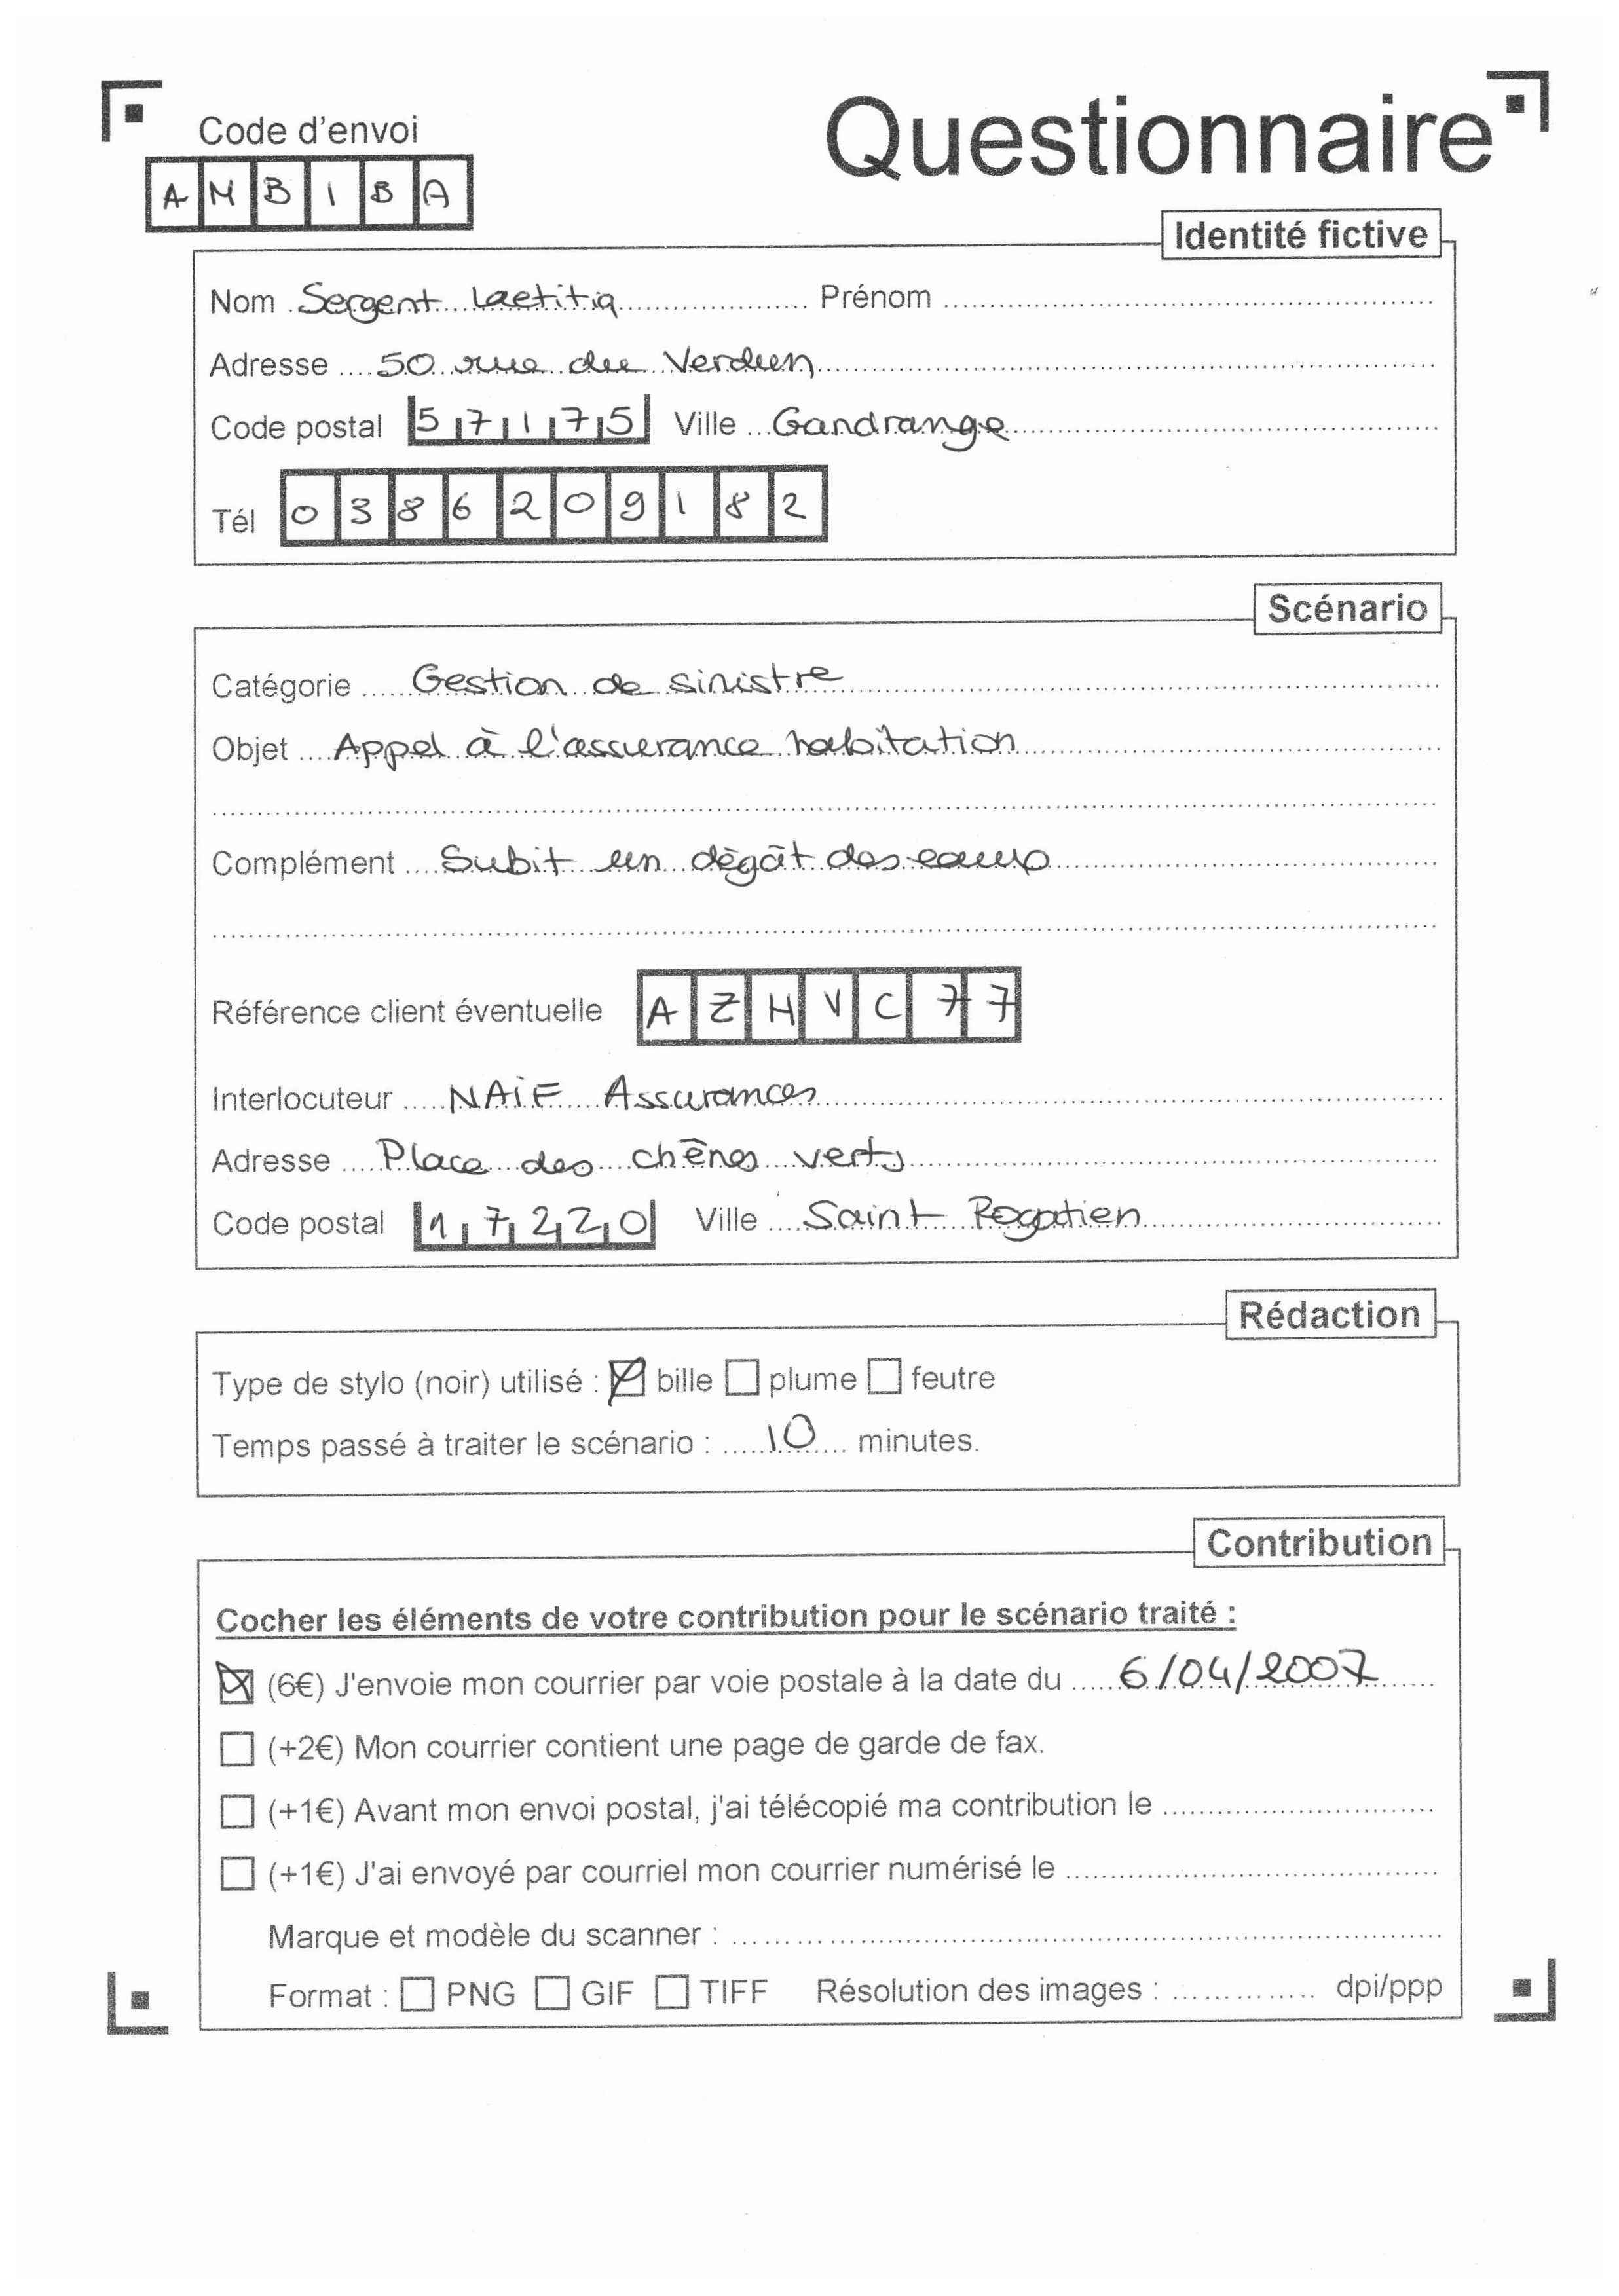 Code d'envoi
Questionnaire
AMBIBA
Identité fictive
Nom Sergent Laetitia Prénom
Adresse 50 rue du Verdun
Code postal 57175 Ville Gandrange
Tél 0386209182
Scénario
Catégorie Gestion de sinistre
Objet Appel à l'assurance habitation
Complément Subit un dégât des eaux
Référence client éventuelle AZHVC77
Interlocuteur NAIF Assurances
Adresse Place des chênes verts
Code postal 17220 Ville Saint Rogatien
Rédaction
Type de stylo (noir) utilisé : bille plume feutre
Temps passé à traiter le scénario : 10 minutes.
Contribution
Cocher les éléments de votre contribution pour le scénario traité :
(6€) J'envoie mon courrier par voie postale à la date du 6/04/2007
(+2€) Mon courrier contient une page de garde de fax.
(+1€) Avant mon envoi postal, j'ai télécopié ma contribution le
(+1€) J'ai envoyé par courriel mon courrier numérisé le
Marque et modèle du scanner :
Format : PNG GIF TIFF Résolution des images : dpi/ppp